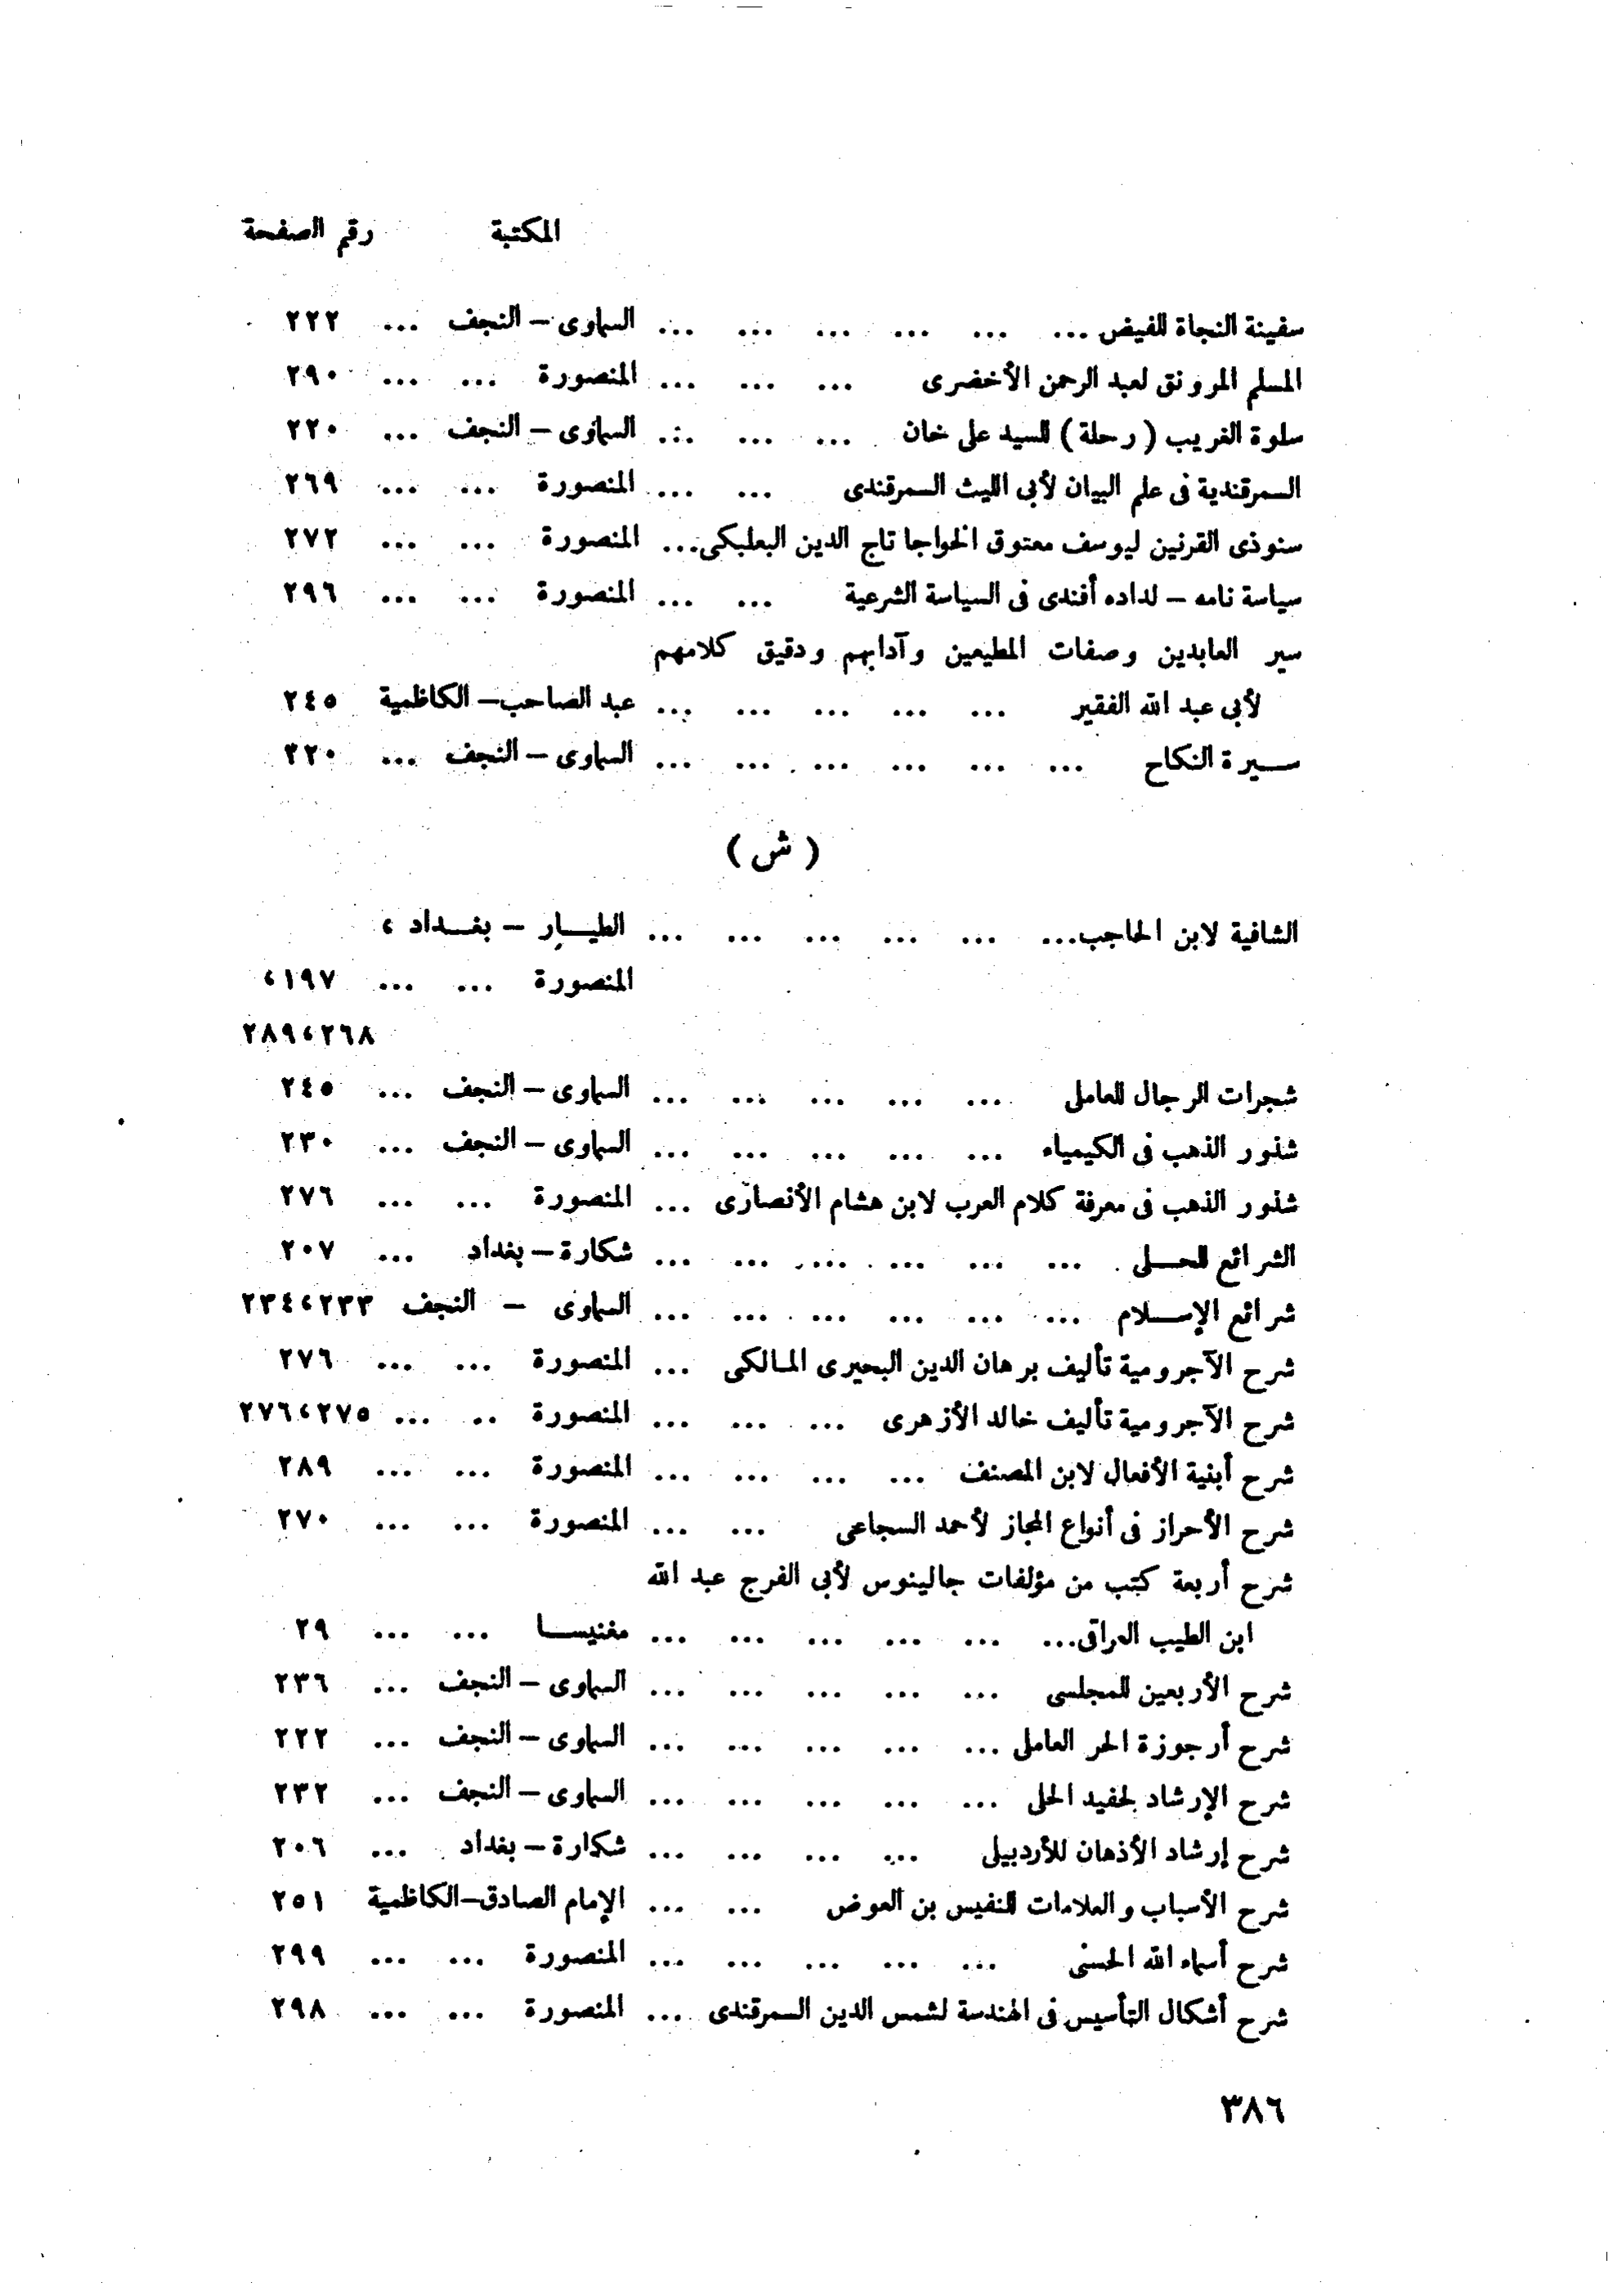 المكتبة رقم الصفحة
سفينة النجاة للفيض ... ... ... ... ... ... السماوى – النجف ... ٢٢٢
المسلم المرونق لعبد الرحمن الأخضرى ... ... ... المنصورة ... ... ٢٩٠
سلوة الغريب ( رحلة ) للسيد على خان ... ... ... السماوى – النجف ... ٢٢٠
السمرقندية فى علم البيان لأبى الليث السمرقندى ... ... المنصورة ... ... ٢٦٩
سنوذى القرنين ليوسف معتوق الخواجا تاج الدين البعلبكى... المنصورة ... ... ٢٧٢
سياسة نامه – لداده أفندى فى السياسة الشرعية ... ... المنصورة ... ... ٢٩٦
سير العابدين وصفات المطيعين وآدابهم ودقيق كلامهم
لأبى عبد الله الفقير ... ... ... ... ... عبد الصاحب – الكاظمية ٢٤٥
سيرة النكاح ... ... ... ... ... ... السماوى – النجف ... ٢٢٠
( ش )
الشافية لابن الحاجب... ... ... ... ... ... الطيار – بغداد ،
المنصورة ... ... ١٩٧،
٢٦٨، ٢٨٩
شجرات الرجال للعاملى ... ... ... ... ... السماوى – النجف ... ٢٤٥
شذور الذهب فى الكيمياء ... ... ... ... ... السماوى – النجف ... ٢٣٠
شذور الذهب فى معرفة كلام العرب لابن هشام الأنصارى ... المنصورة ... ... ٢٧٦
الشرائع للحلى ... ... ... ... ... ... شكارة – بغداد ... ٢٠٧
شرائع الإسلام ... ... ... ... ... ... السماوى – النجف ٢٣٣، ٢٣٤
شرح الآجرومية تأليف برهان الدين البحيرى المالكى ... المنصورة ... ... ٢٧٦
شرح الآجرومية تأليف خالد الأزهرى ... ... ... المنصورة .. ... ٢٧٥، ٢٧٦
شرح أبنية الأفعال لابن المصنف ... ... ... ... المنصورة ... ... ٢٨٩
شرح الأحراز فى أنواع المجاز لأحمد السجاعى ... ... المنصورة ... ... ٢٧٠
شرح أربعة كتب من مؤلفات جالينوس لأبى الفرج عبد الله
ابن الطيب العراقى... ... ... ... ... ... مغنيسا ... ... ٢٩
شرح الأربعين للمجلسى ... ... ... ... ... السماوى – النجف ... ٢٣٦
شرح أرجوزة الحر العاملى ... ... ... ... ... السماوى – النجف ... ٢٢٢
شرح الإرشاد لحفيد الحلى ... ... ... ... ... السماوى – النجف ... ٢٣٢
شرح إرشاد الأذهان للأردبيلى ... ... ... ... شكارة – بغداد ... ٢٠٦
شرح الأسباب والعلامات للنفيس بن العوض ... ... الإمام الصادق – الكاظمية ٢٥١
شرح أسماء الله الحسنى ... ... ... ... ... المنصورة ... ... ٢٩٩
شرح أشكال التأسيس فى الهندسة لشمس الدين السمرقندى ... المنصورة ... ... ٢٩٨
٣٨٦